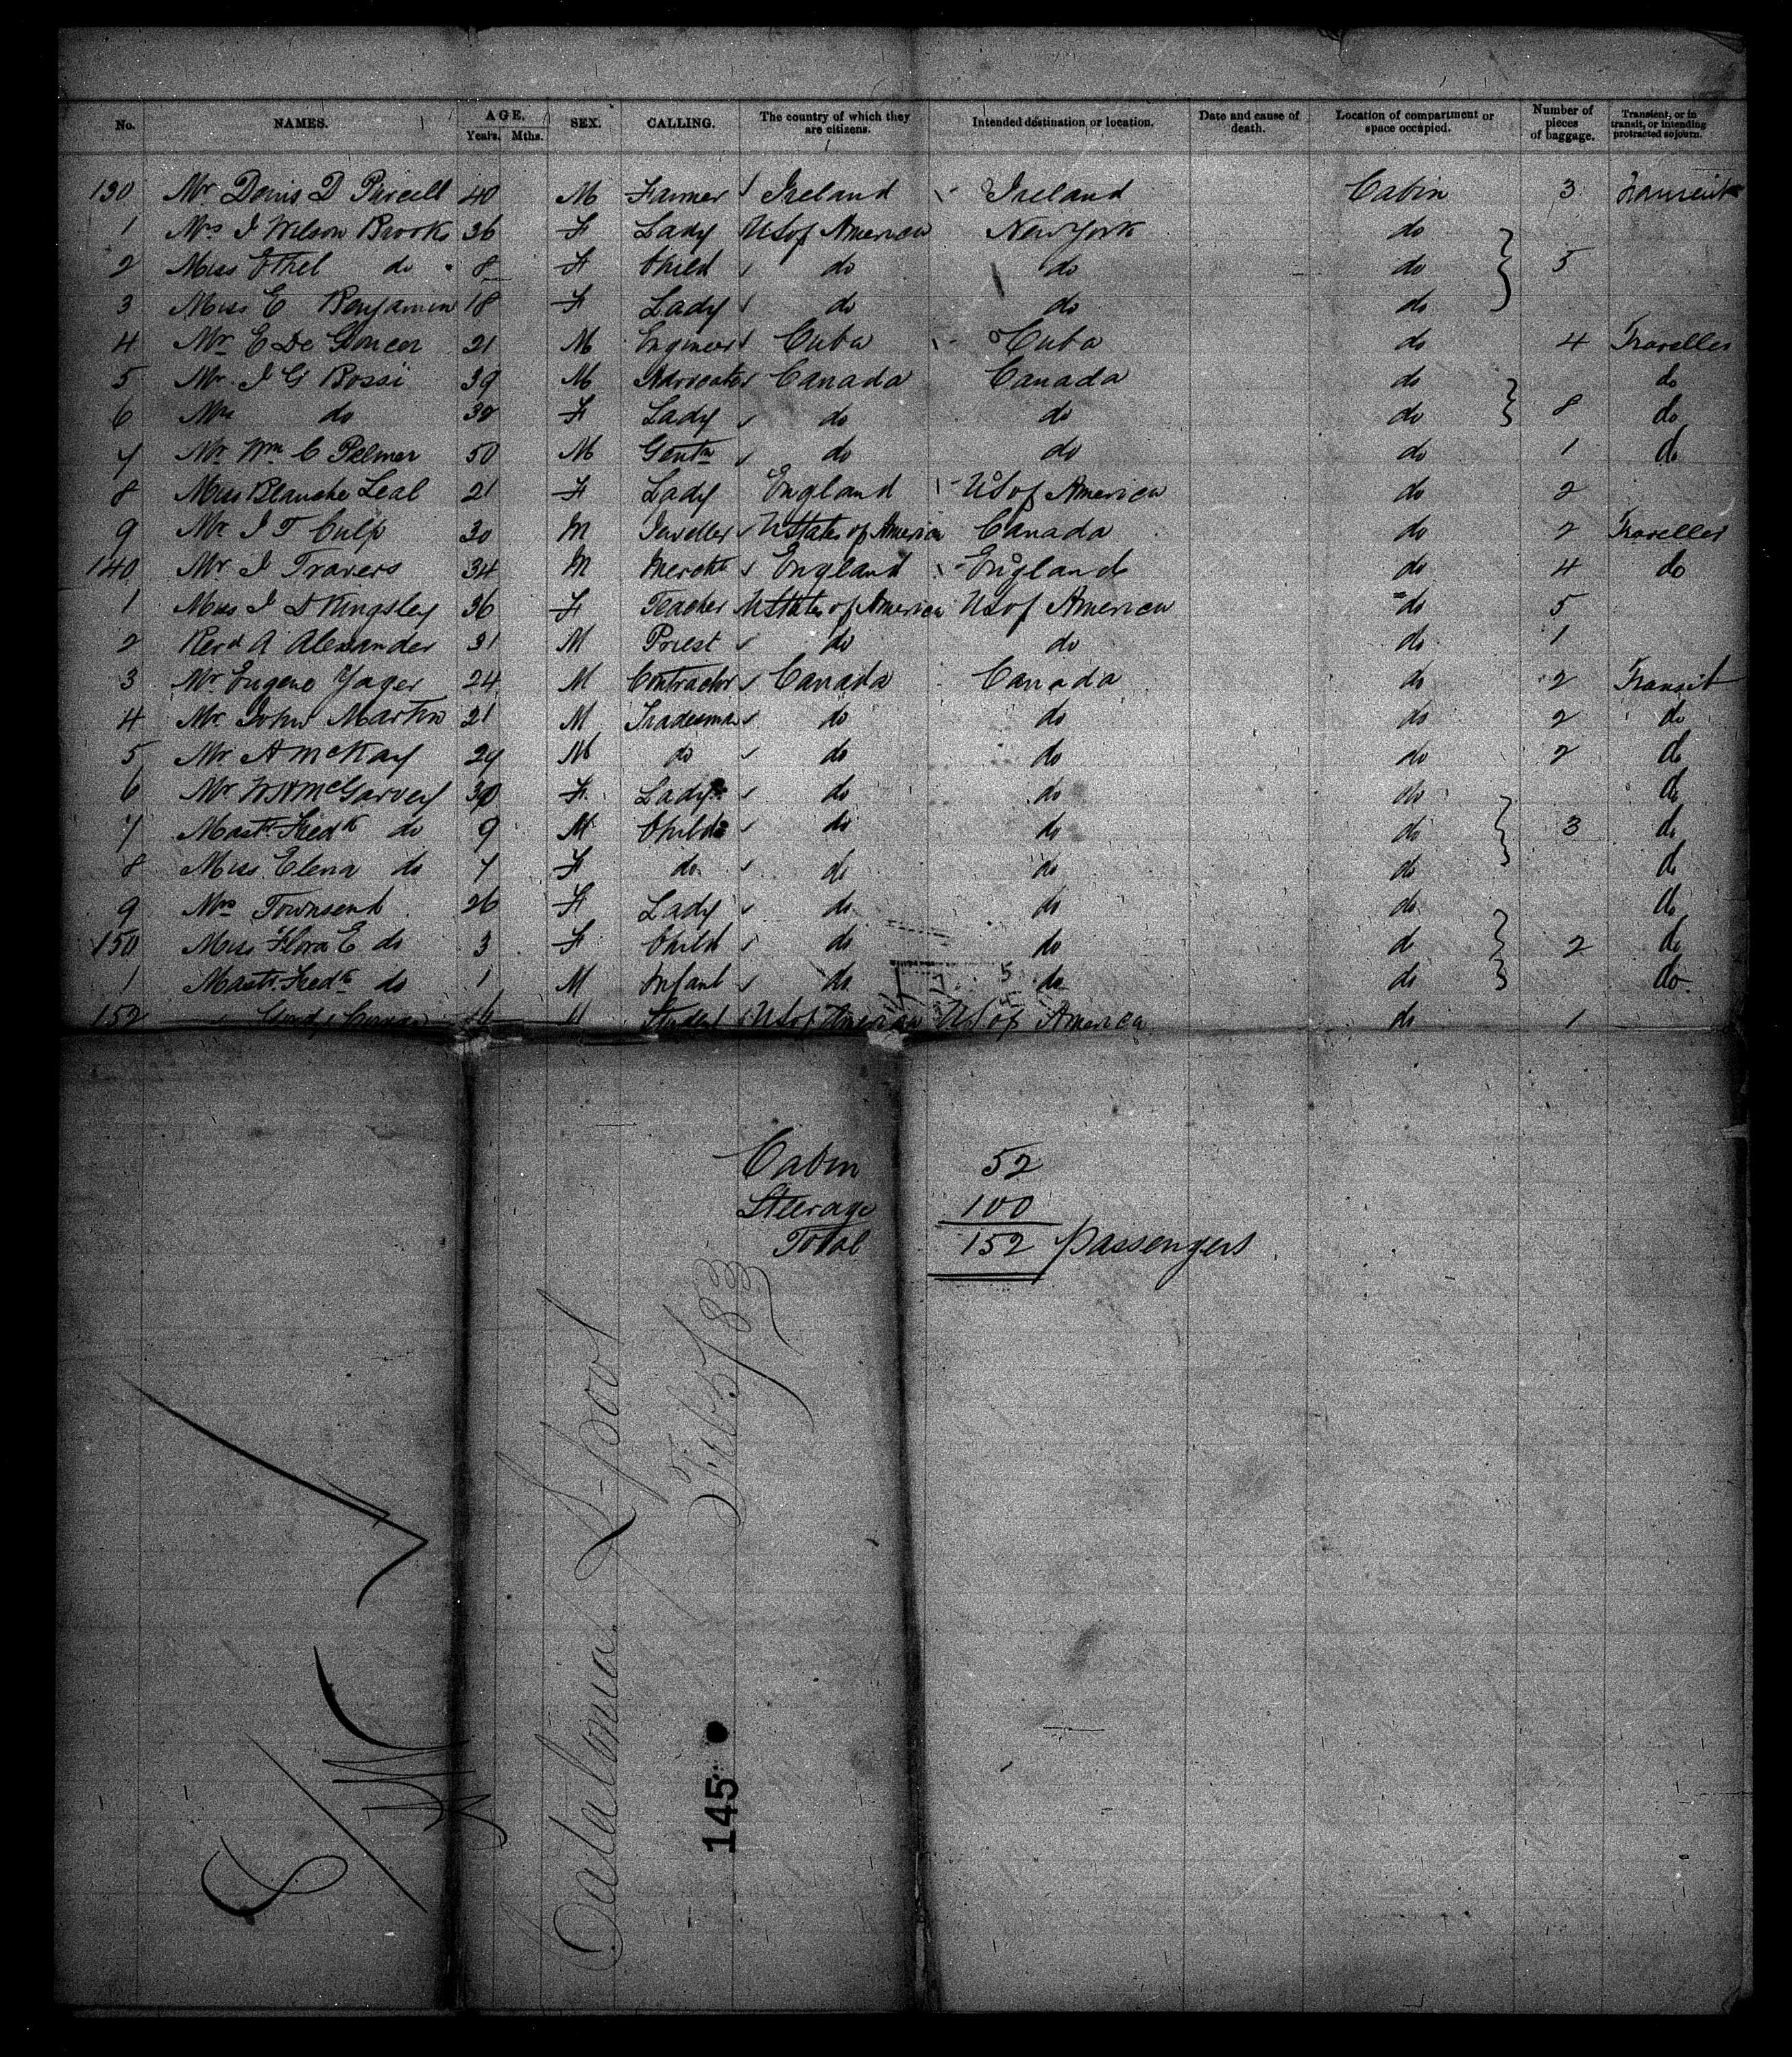 No. NAMES. AGE. Years. Mths. SEX. CALLING. The country of which they are citizens. Intended destination or location. Date and cause of death. Location of compartment or space occupied. Number of pieces of baggage. Transient, or in transit, or intending protracted sojourn.
130 Mr Denis D Purcell 40 M Farmer Ireland Ireland Cabin 3 Transient
1 Mrs J Wilson Brooks 36 F Lady US of America New York do
2 Miss Ethel do 8 F Child do do do 5
3 Miss E Benjamin 18 F Lady do do do
4 Mr E De 21 M Engineer Cuba Cuba do 4 Traveller
5 Mr J G Rossi 39 M Advocate Canada Canada do do
6 Mrs do 30 F Lady do do do 8 do
7 Mr Wm C Palmer 50 M Gentn do do do 1 do
8 Miss Blanche Leal 21 F Lady England US of America do 2
9 Mr J T Culp 30 M Jeweller U States of America Canada do 2 Traveller
140 Mr J Travers 34 M Mercht England England do 4 do
1 Miss J D Kingsley 36 F Teacher U States of America US of America do 5
2 Revd A Alexander 31 M Priest do do do 1
3 Mr Eugene Yager 24 M Contractor Canada Canada do 2 Transit
4 Mr John Martin 21 M Tradesman do do do 2 do
5 Mr A McKay 29 M do do do do 2 do
6 Mr McGarvey 30 F Lady do do do do
7 Mastr Fredk do 9 M Child do do do 3 do
8 Miss Elena do 7 F do do do do do
9 Mrs Townsend 26 F Lady do do do do
150 Miss Flora E do 3 F Child do do do 2 do
1 Mastr Fredk do 1 M Infant do do do do
152 16 M Student US of America US of America do 1
Cabin 52
Steerage 100
Total 152 passengers
Catalonia L'pool
Feb 5/83
145